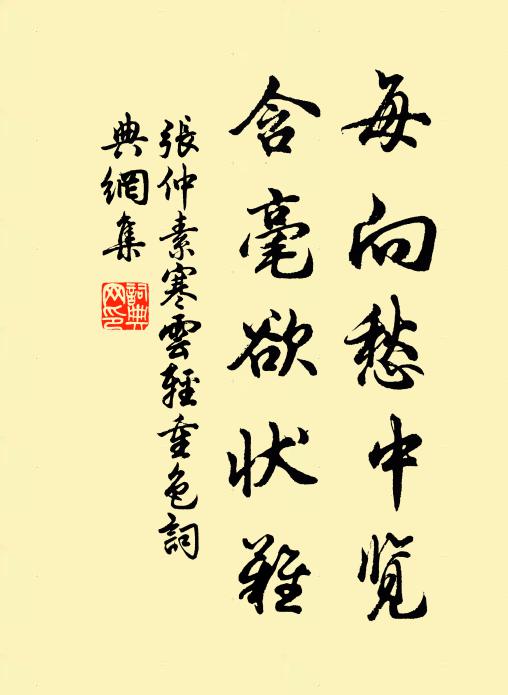 每向愁中览
含毫欲状难
張仲素寒雲輕重色詞
典網集
詞典
网印